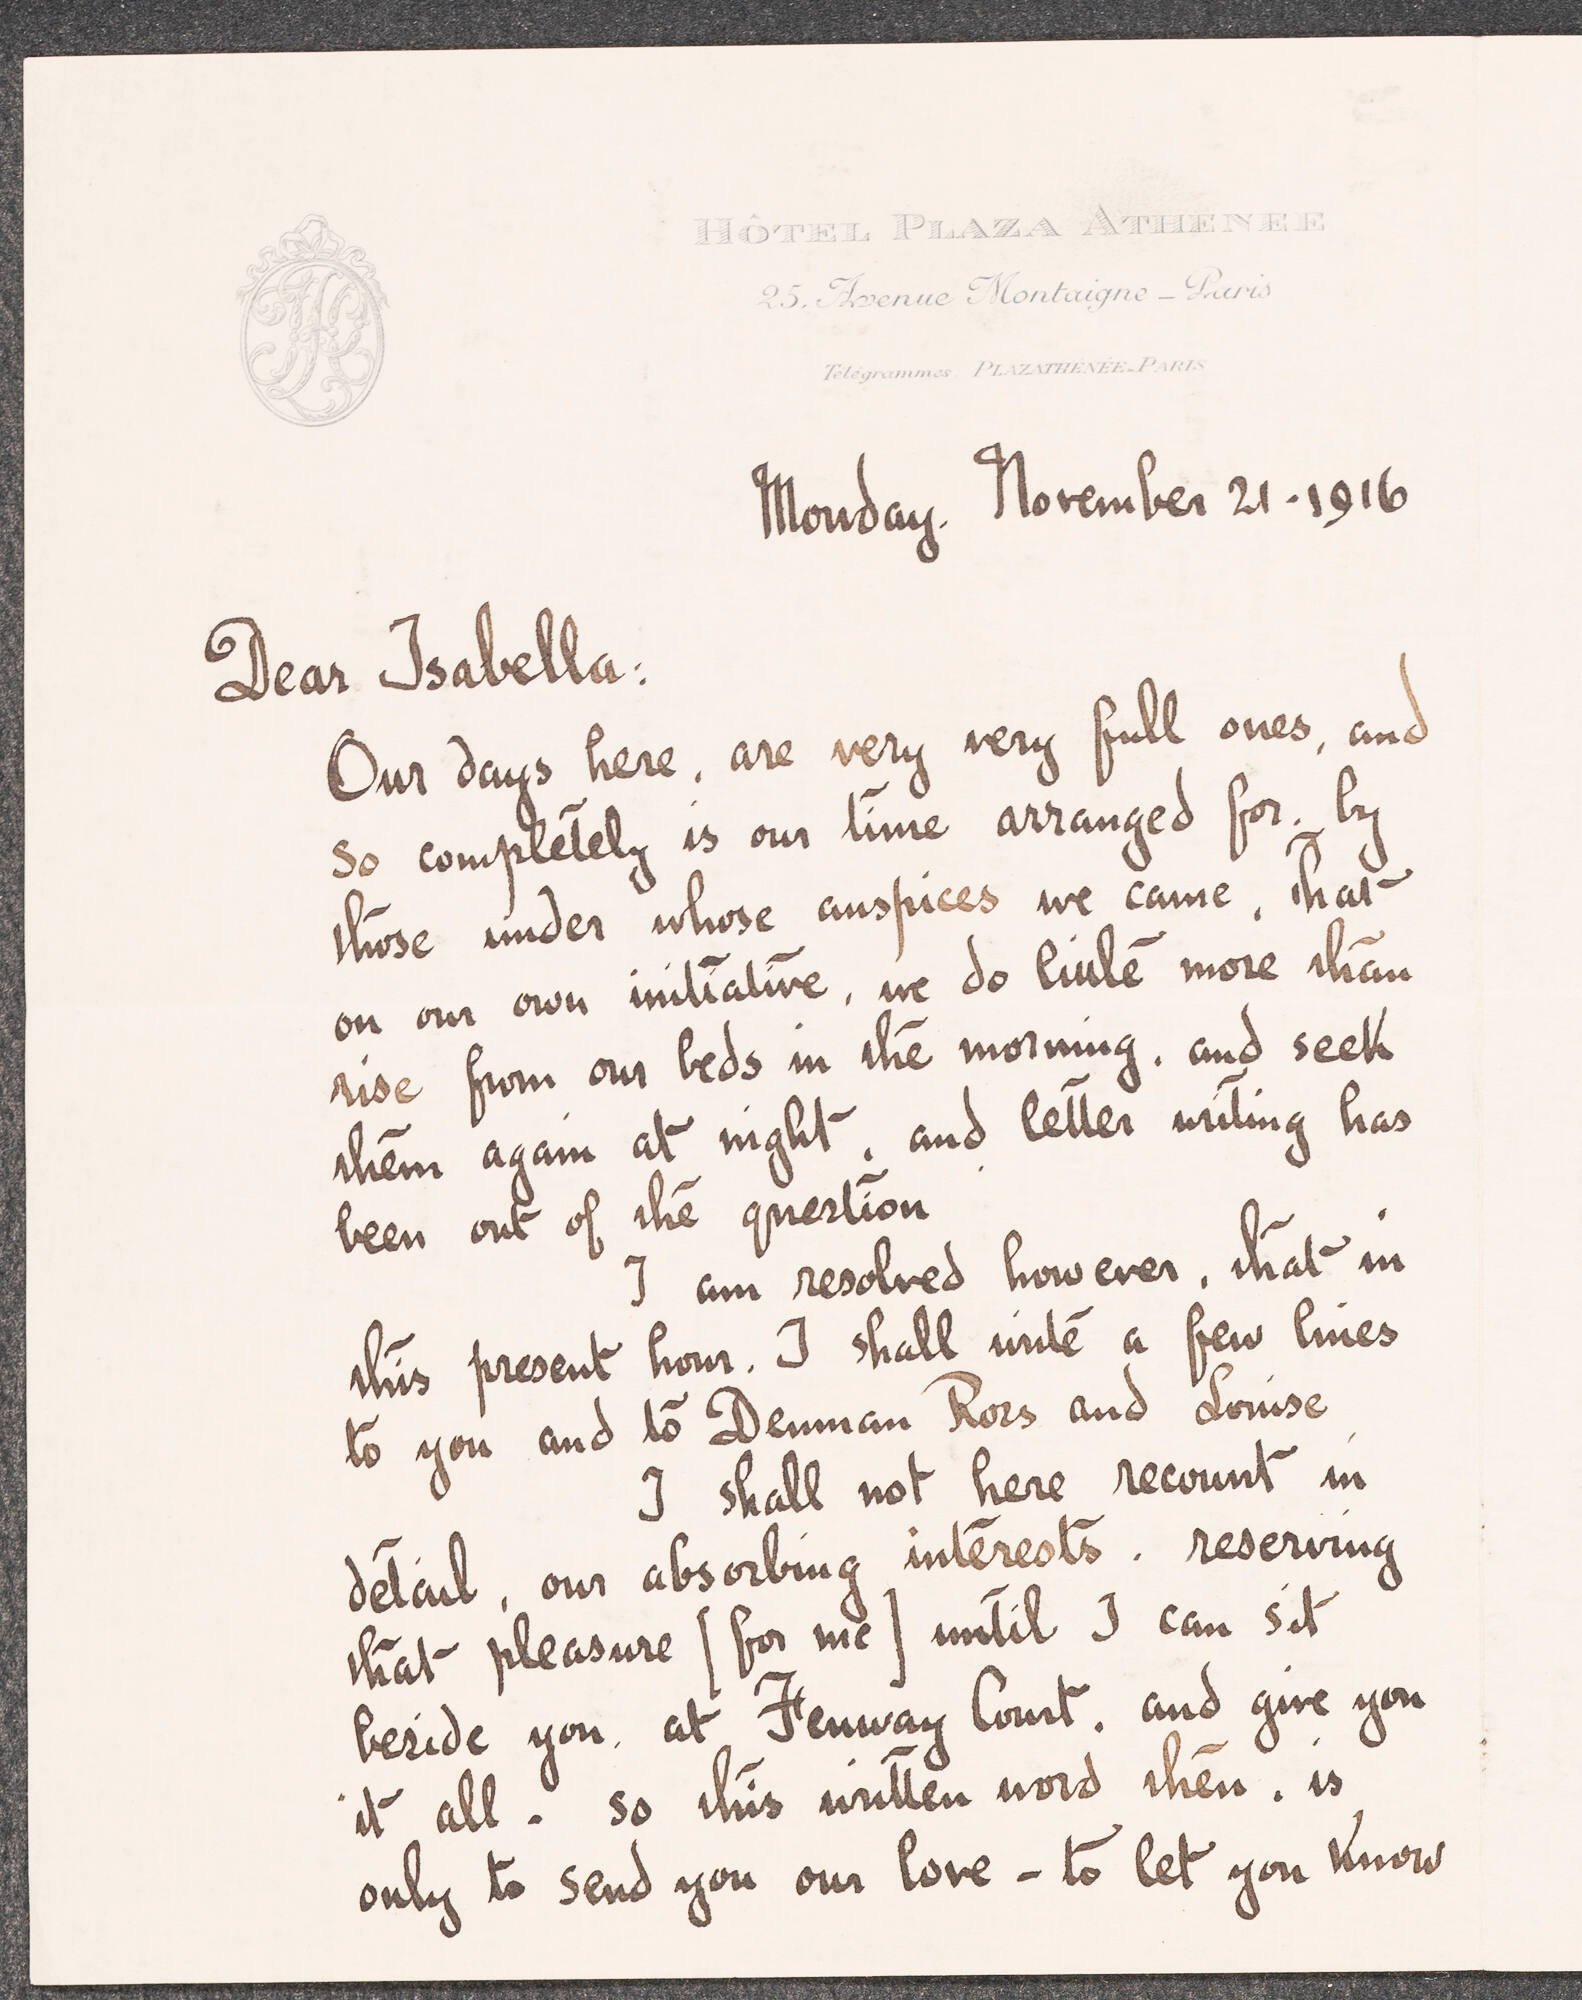 HÔTEL PLAZA ATHENEE
25. Avenue Montaigne - Paris
Télégrammes. PLAZATHÉNÉE-PARIS
Monday. November 21 - 1916
Dear Isabella:
Our days here, are very very full ones, and
so completely is our time arranged for. by
those under whose auspices we came, that
on our own initiative, we do little more than
rise from our beds in the morning. and seek
them again at night, and letter writing has
been out of the question
I am resolved however, that in
this present hour. I shall write a few lines
to you and to Denman Ross and Louise
I shall not here recount in
detail, our absorbing interests. reserving
that pleasure [for me] until I can sit
beside you, at Fenway Court. and give you
it all - so this written word then, is
only to send you our love - to let you know